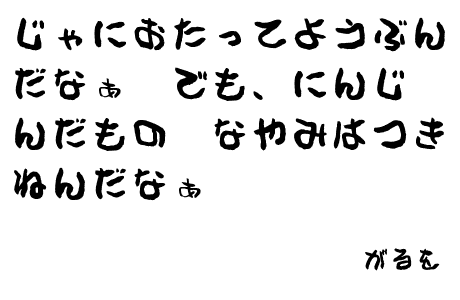 じゃにおたってようぶん
だなぁ　でも、にんじ
んだもの　なやみはつき
ねんだなぁ
がるを